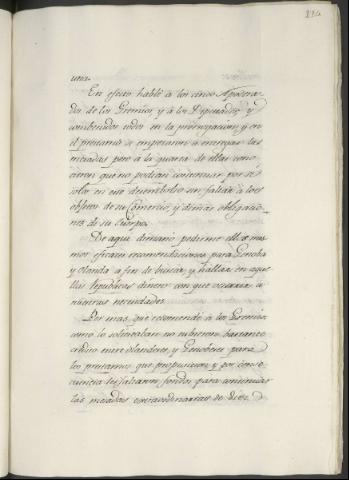 124
una.
En efecto hablé á los cinco Apodera-
dos de los Gremios, y á los Diputados, y
combenidos todos en la prorrogacion, y en
el prestamo se empezaron á entregar las
mesadas pero á la quarta de ellas cono-
cieron que no podrian continuar por sí
solos en este desembolso sin faltar á los
objetos de su Comercio, y demas obligacio-
nes de su Cuerpo.
De aqui dimanó pedirme ellos mis-
mos eficaces recomendaciones para Genoba
y Olanda a fin de buscar, y hallar en aque-
llas Republicas dinero con que ocurrir á
nuestras necesidades.
Por mas que recomendé á los Gremios
como lo solicitaban no tubieron bastante
credito entre olandeses, y Genobeses para
los prestamos que propusieron, y por conse-
cuencia les faltaron fondos para continuar
las mesadas extraordinarias de diez